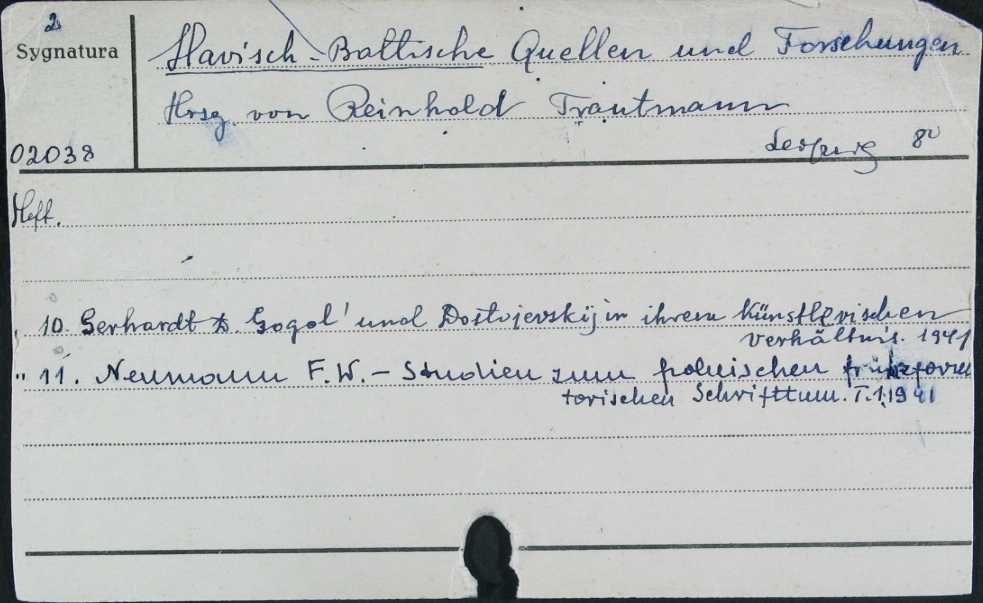 2
Sygnatura
Slavisch-Baltische Quellen und Forschungen
Hrsg. von Reinhold Trautmann
02038
Leipzig 8°
Heft.
10. Gerhardt D. Gogol' und Dostojevskij in ihrem künstlerischen
Verhältnis. 1941
" 11. Neumann F.W. - Studien zum polnischen
torischen Schrifttum. T.1. 1941